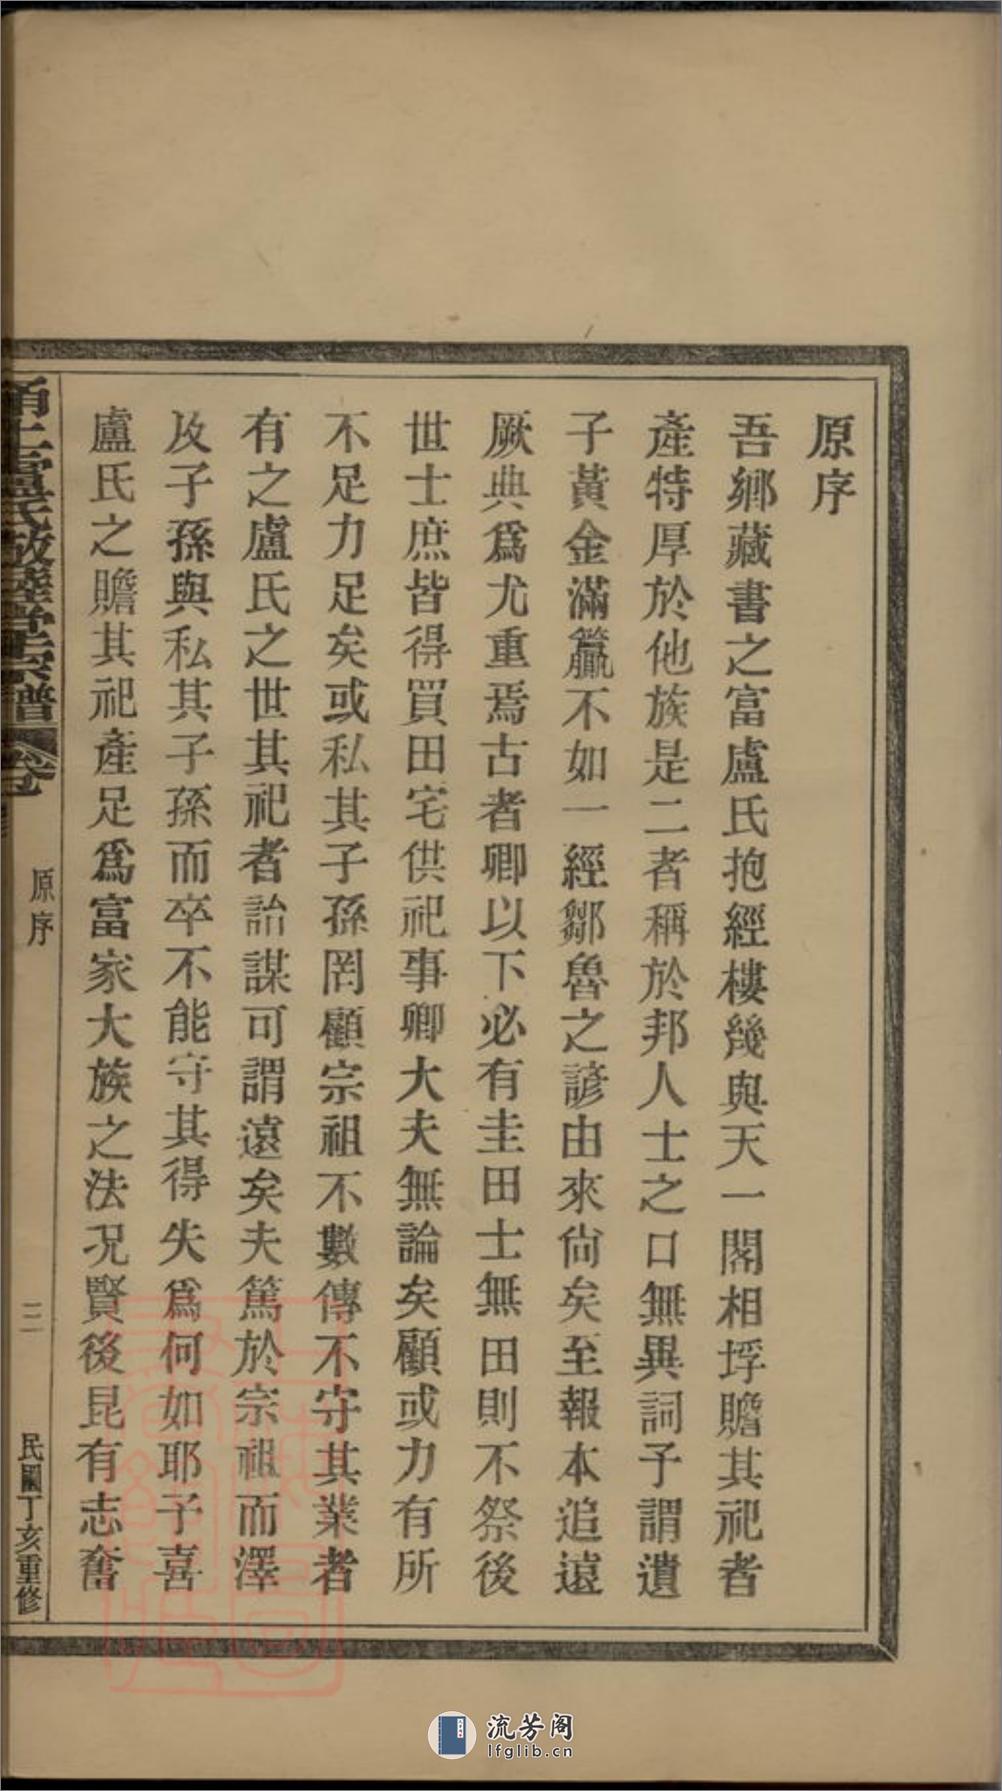 原序
吾鄉藏書之富盧氏抱經樓幾與天一閣相埒贍其祀者
產特厚於他族是二者稱於邦人士之口無異詞予謂遺
子黃金滿籯不如一經鄒魯之諺由來尙矣至報本追遠
厥典爲尤重焉古者卿以下必有圭田士無田則不祭後
世士庶皆得買田宅供祀事卿大夫無論矣顧或力有所
不足力足矣或私其子孫罔顧宗祖不數傳不守其業者
有之盧氏之世其祀者詒謀可謂遠矣夫篤於宗祖而澤
及子孫與私其子孫而卒不能守其得失爲何如耶予喜
盧氏之贍其祀產足爲富家大族之法況賢後昆有志奮
甬上盧氏敬睦堂宗譜 卷
原序
二
民國丁亥重修
流芳阁
lfglib.cn